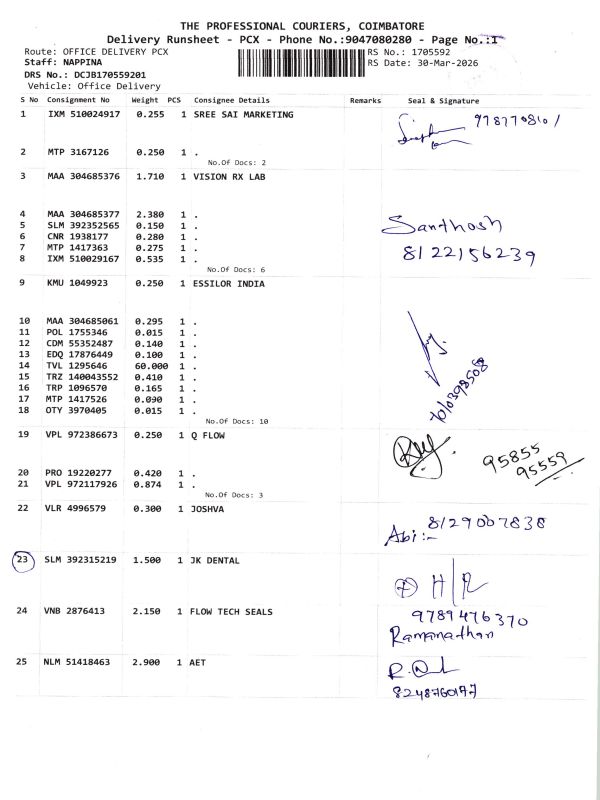 THE PROFESSIONAL COURIERS, COIMBATORE
Delivery Runsheet - PCX - Phone No.:9047080280 - Page No.:1
Route: OFFICE DELIVERY PCX
RS No.: 1705592
Staff: NAPPINA
RS Date: 30-Mar-2026
DRS No.: DCJB170559201
Vehicle: Office Delivery
S No Consignment No Weight PCS Consignee Details Remarks Seal & Signature
1 IXM 510024917 0.255 1 SREE SAI MARKETING
2 MTP 3167126 0.250 1 .
No.Of Docs: 2
3 MAA 304685376 1.710 1 VISION RX LAB
4 MAA 304685377 2.380 1 . Santhosh
5 SLM 392352565 0.150 1 .
6 CNR 1938177 0.280 1 .
7 MTP 1417363 0.275 1 . 8122156239
8 IXM 510029167 0.535 1 .
No.Of Docs: 6
9 KMU 1049923 0.250 1 ESSILOR INDIA
10 MAA 304685061 0.295 1 .
11 POL 1755346 0.015 1 .
12 CDM 55352487 0.140 1 .
13 EDQ 17876449 0.100 1 .
14 TVL 1295646 60.000 1 .
15 TRZ 140043552 0.410 1 .
16 TRP 1096570 0.165 1 .
17 MTP 1417526 0.090 1 .
18 OTY 3970405 0.015 1 .
No.Of Docs: 10
19 VPL 972386673 0.250 1 Q FLOW
95855
95559
20 PRO 19220277 0.420 1 .
21 VPL 972117926 0.874 1 .
No.Of Docs: 3
22 VLR 4996579 0.300 1 JOSHVA
8129007838
Abi:-
23 SLM 392315219 1.500 1 JK DENTAL
24 VNB 2876413 2.150 1 FLOW TECH SEALS
9789476370
Ramanathan
25 NLM 51418463 2.900 1 AET
8248760197